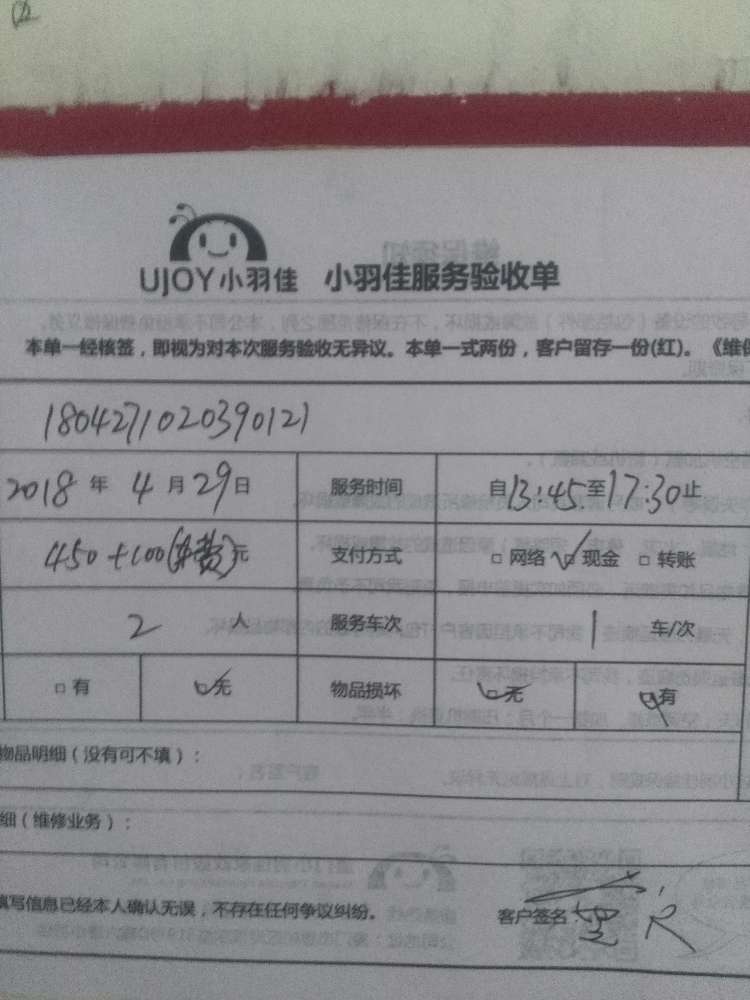 UJOY小羽佳 小羽佳服务验收单
本单一经核签，即视为对本次服务验收无异议。本单一式两份，客户留存一份(红)。《维保
1804271020390121
2018年4月29日 服务时间 自13:45至17:30止
450+100(车费)元 支付方式 □网络 ☑现金 □转账
2人 服务车次 1车/次
□有 ☑无 物品损坏 ☑无 □有
物品明细（没有可不填）：
细（维修业务）：
填写信息已经本人确认无误，不存在任何争议纠纷。 客户签名: